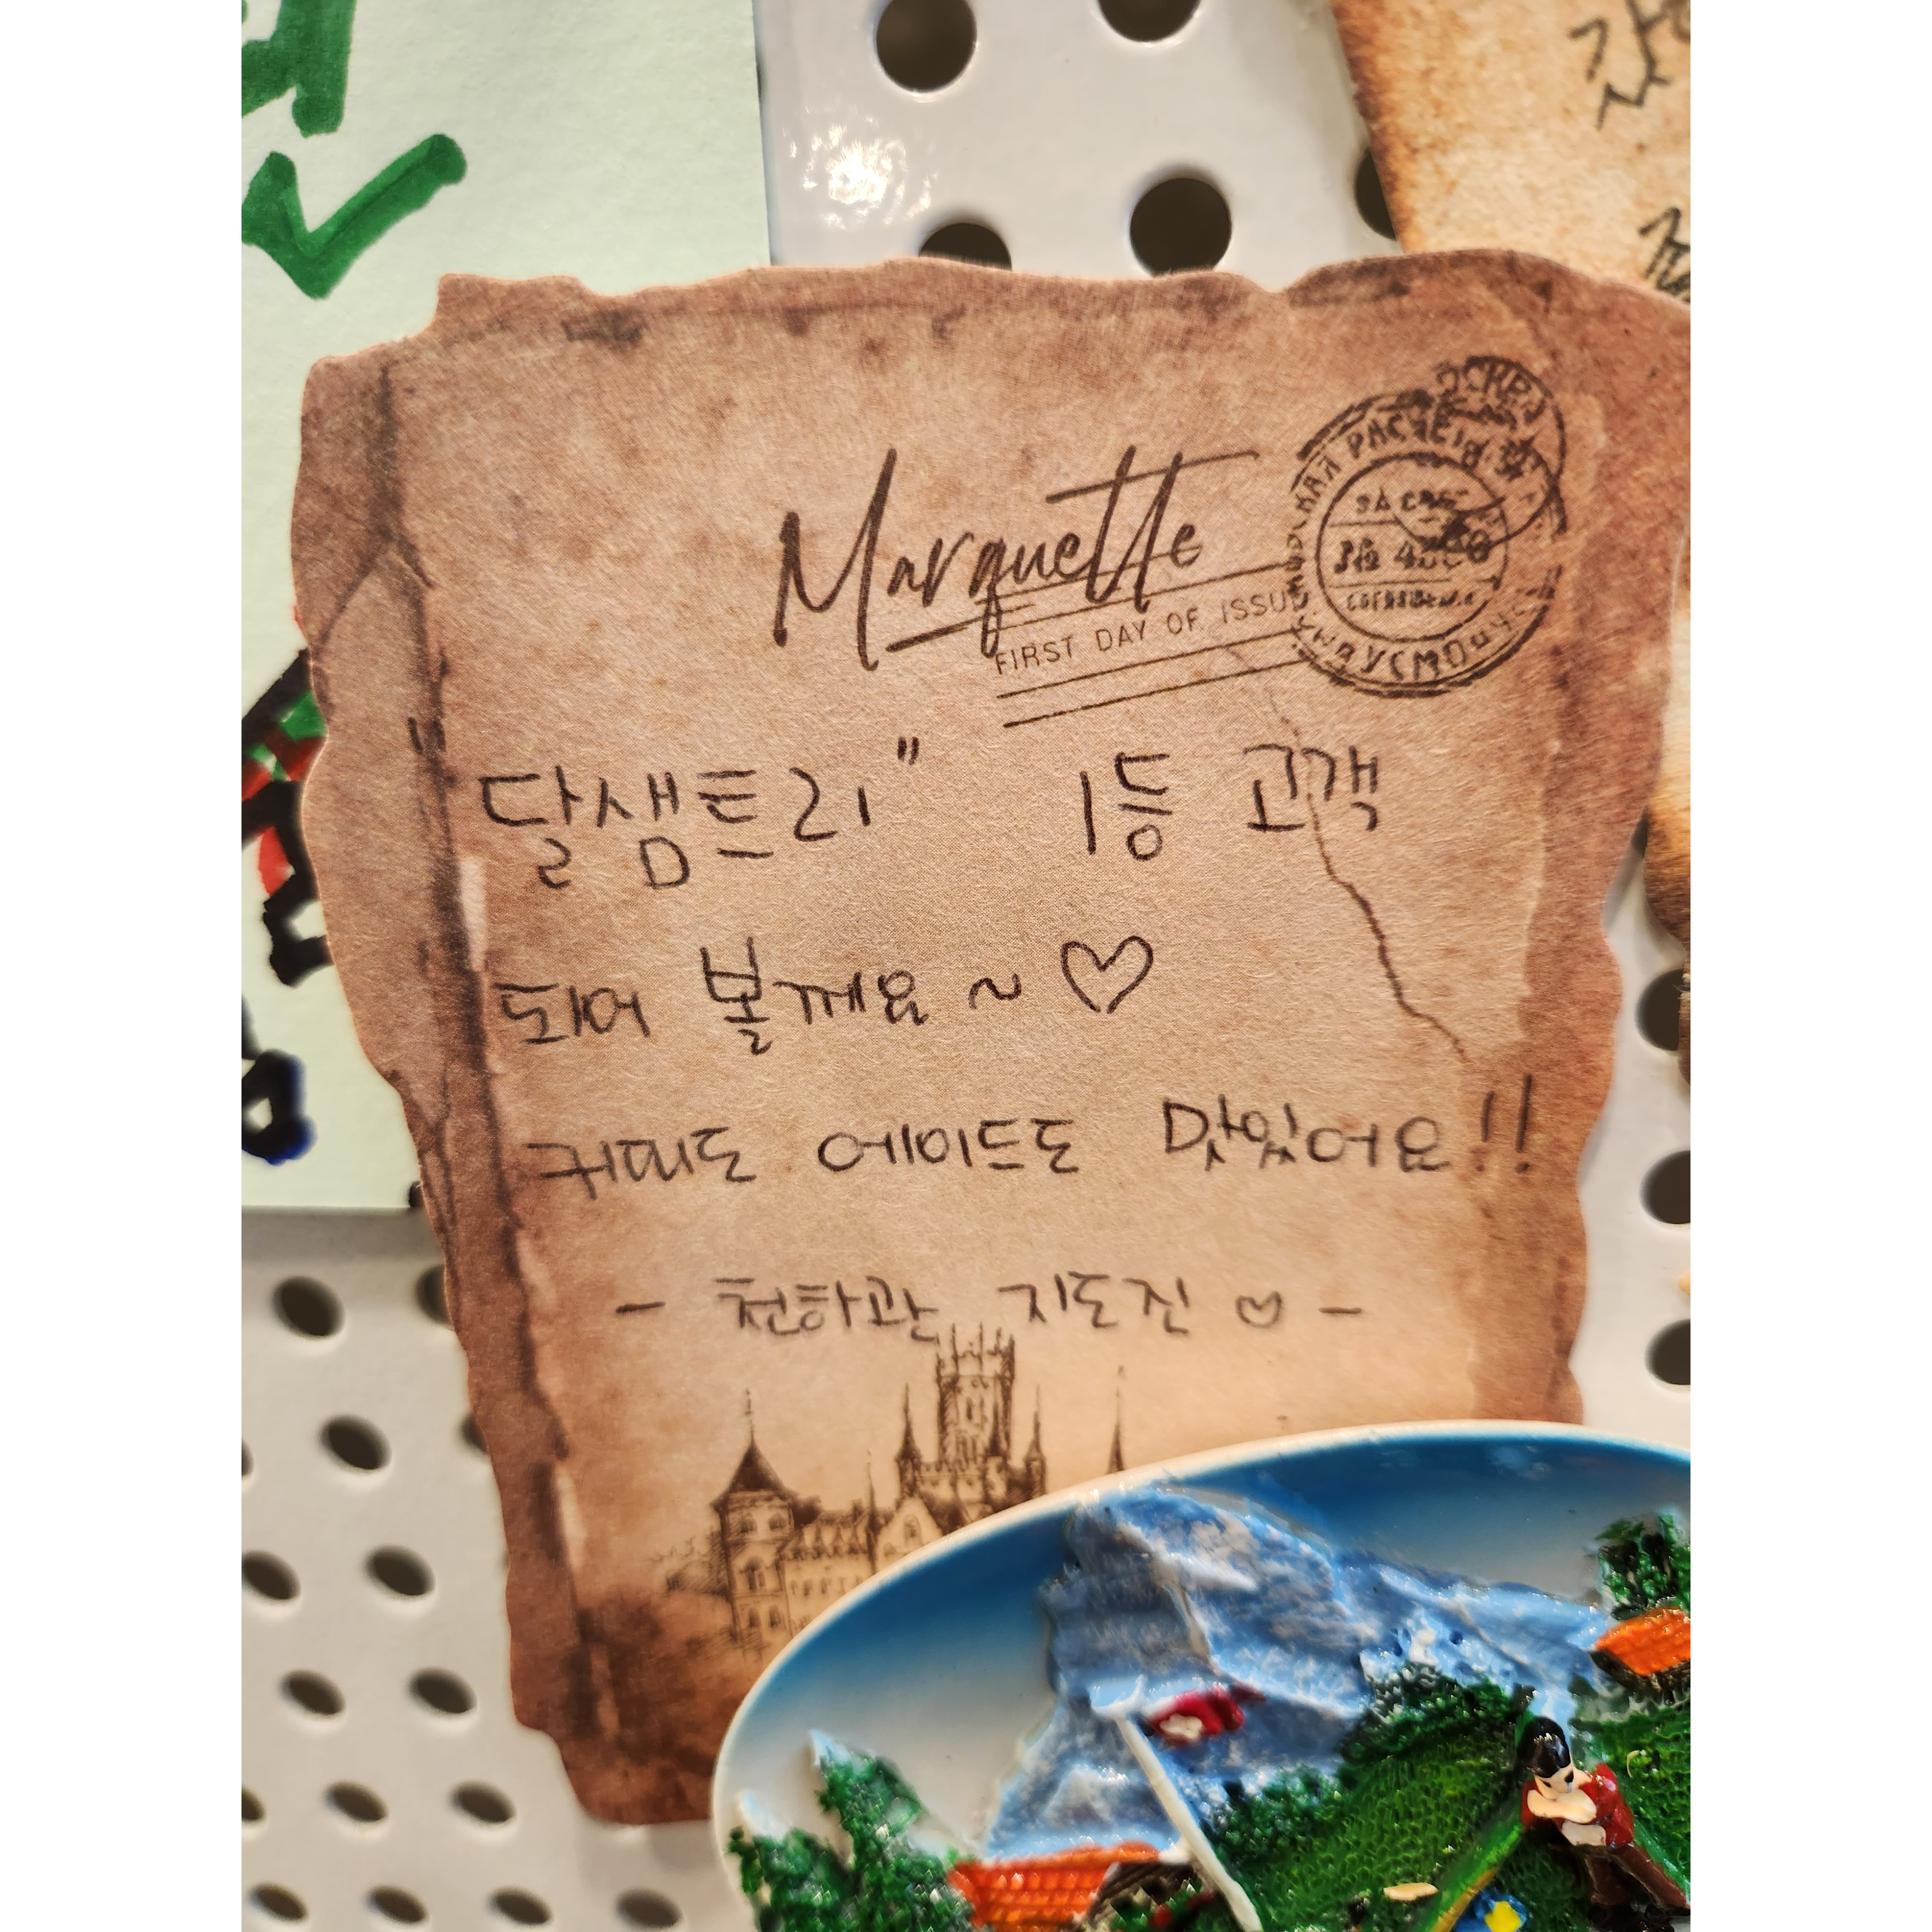 Marquette
FIRST DAY OF ISSUE
"달샘트리" 1등 고객
되어 볼께요 ~ ♡
커피도 에이드도 맛있어요!!
- 천하관 지도진 ♡ -